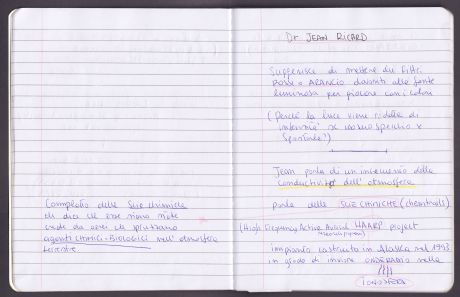 Complotto delle Scie chimiche
si dice che esse siano state
create da aerei che spruzzano
agenti CHIMICI-BIOLOGICI nell'atmosfera
terrestre.
Dr JEAN RICARD
Suggerisce di mettere dei filtri
ROSSI o ARANCIO davanti alle fonte
luminosa per giocare con i colori
(Perché la luce viene ridotta di
intensità se uso specchio x
Spostarla?)
Jean parla di un incremento della
conductivity dell'atmosfera
parla delle SCIE CHIMICHE (chemtrails)
(High Frequency Active Auroral HAARP project
Research program)
impianto costruito in Alaska nel 1993
in grado di inviare ONDE RADIO nella
IONOSFERA